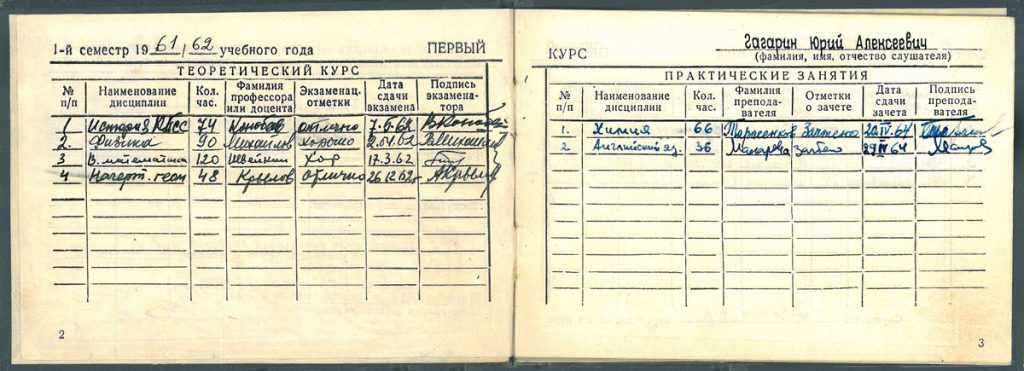 1-й семестр 1961/62 учебного года ПЕРВЫЙ
ТЕОРЕТИЧЕСКИЙ КУРС
№ п/п Наименование дисциплин Кол. час. Фамилия профессора или доцента Экзаменац. отметки Дата сдачи экзамена Подпись экзаменатора
1. История КПСС 74 отлично
2. Физика 90 Михайлов хорошо 2.04.62
3 В. математика 120 Швейкин Хор 17.3.62
4 Начерт. геом 48 Крылов Отлично 26.12.62г
2
КУРС Гагарин Юрий Алексеевич
(фамилия, имя, отчество слушателя)
ПРАКТИЧЕСКИЕ ЗАНЯТИЯ
№ п/п Наименование дисциплин Кол. час. Фамилия преподавателя Отметки о зачете Дата сдачи зачета Подпись преподавателя
1. Химия 66 Тарасенков Зачтено
2. Английский яз. 36 Макарова Зачтено
3